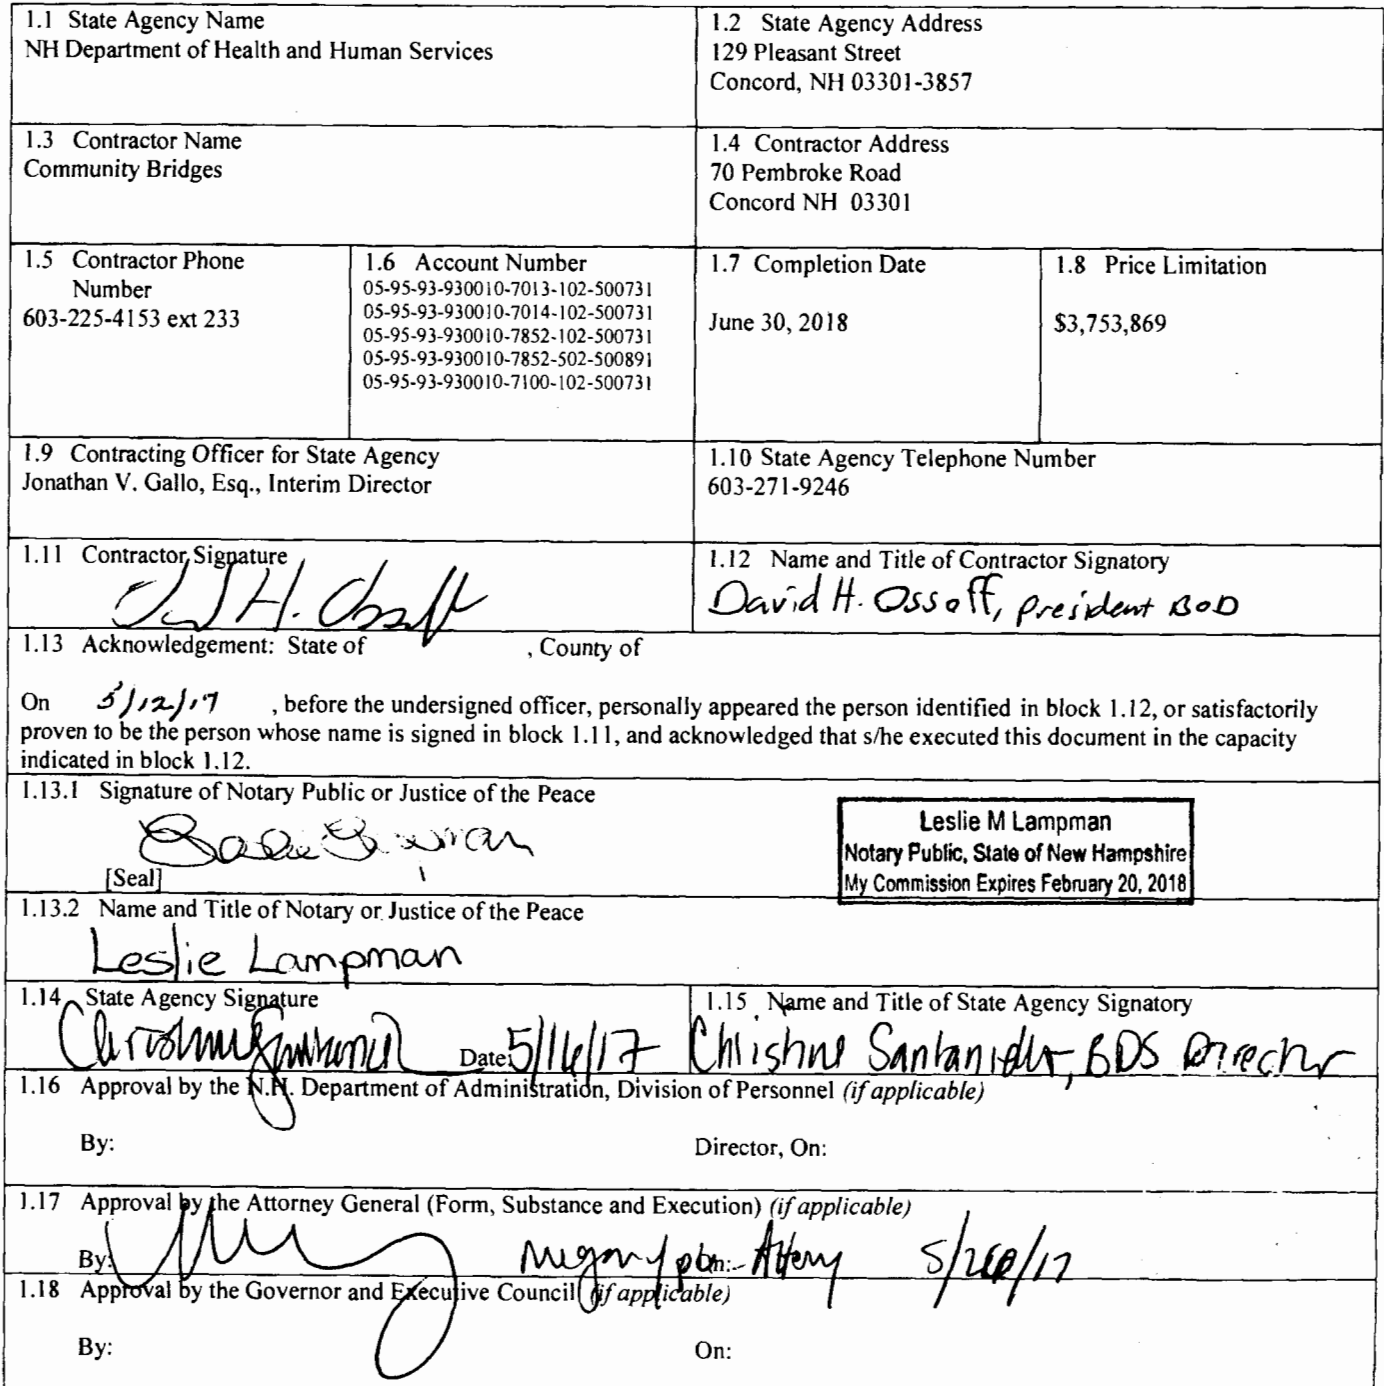 1.1 State Agency Name
NH Department of Health and Human Services
1.2 State Agency Address
129 Pleasant Street
Concord, NH 03301-3857
1.3 Contractor Name
Community Bridges
1.4 Contractor Address
70 Pembroke Road
Concord NH 03301
1.5 Contractor Phone
Number
603-225-4153 ext 233
1.6 Account Number
05-95-93-930010-7013-102-500731
05-95-93-930010-7014-102-500731
05-95-93-930010-7852-102-500731
05-95-93-930010-7852-502-500891
05-95-93-930010-7100-102-500731
1.7 Completion Date
June 30, 2018
1.8 Price Limitation
$3,753,869
1.9 Contracting Officer for State Agency
Jonathan V. Gallo, Esq., Interim Director
1.10 State Agency Telephone Number
603-271-9246
1.11 Contractor Signature
H. Ossoff
1.12 Name and Title of Contractor Signatory
David H. Ossoff, president BOD
1.13 Acknowledgement: State of , County of
On 5/12/17 , before the undersigned officer, personally appeared the person identified in block 1.12, or satisfactorily
proven to be the person whose name is signed in block 1.11, and acknowledged that s/he executed this document in the capacity
indicated in block 1.12.
1.13.1 Signature of Notary Public or Justice of the Peace
[Seal]
Leslie M Lampman
Notary Public, State of New Hampshire
My Commission Expires February 20, 2018
1.13.2 Name and Title of Notary or Justice of the Peace
Leslie Lampman
1.14 State Agency Signature
Date: 5/16/17
1.15 Name and Title of State Agency Signatory
Christine Santaniello, BDS Director
1.16 Approval by the N.H. Department of Administration, Division of Personnel (if applicable)
By:
Director, On:
1.17 Approval by the Attorney General (Form, Substance and Execution) (if applicable)
By:
On:
5/26/17
1.18 Approval by the Governor and Executive Council (if applicable)
By:
On: